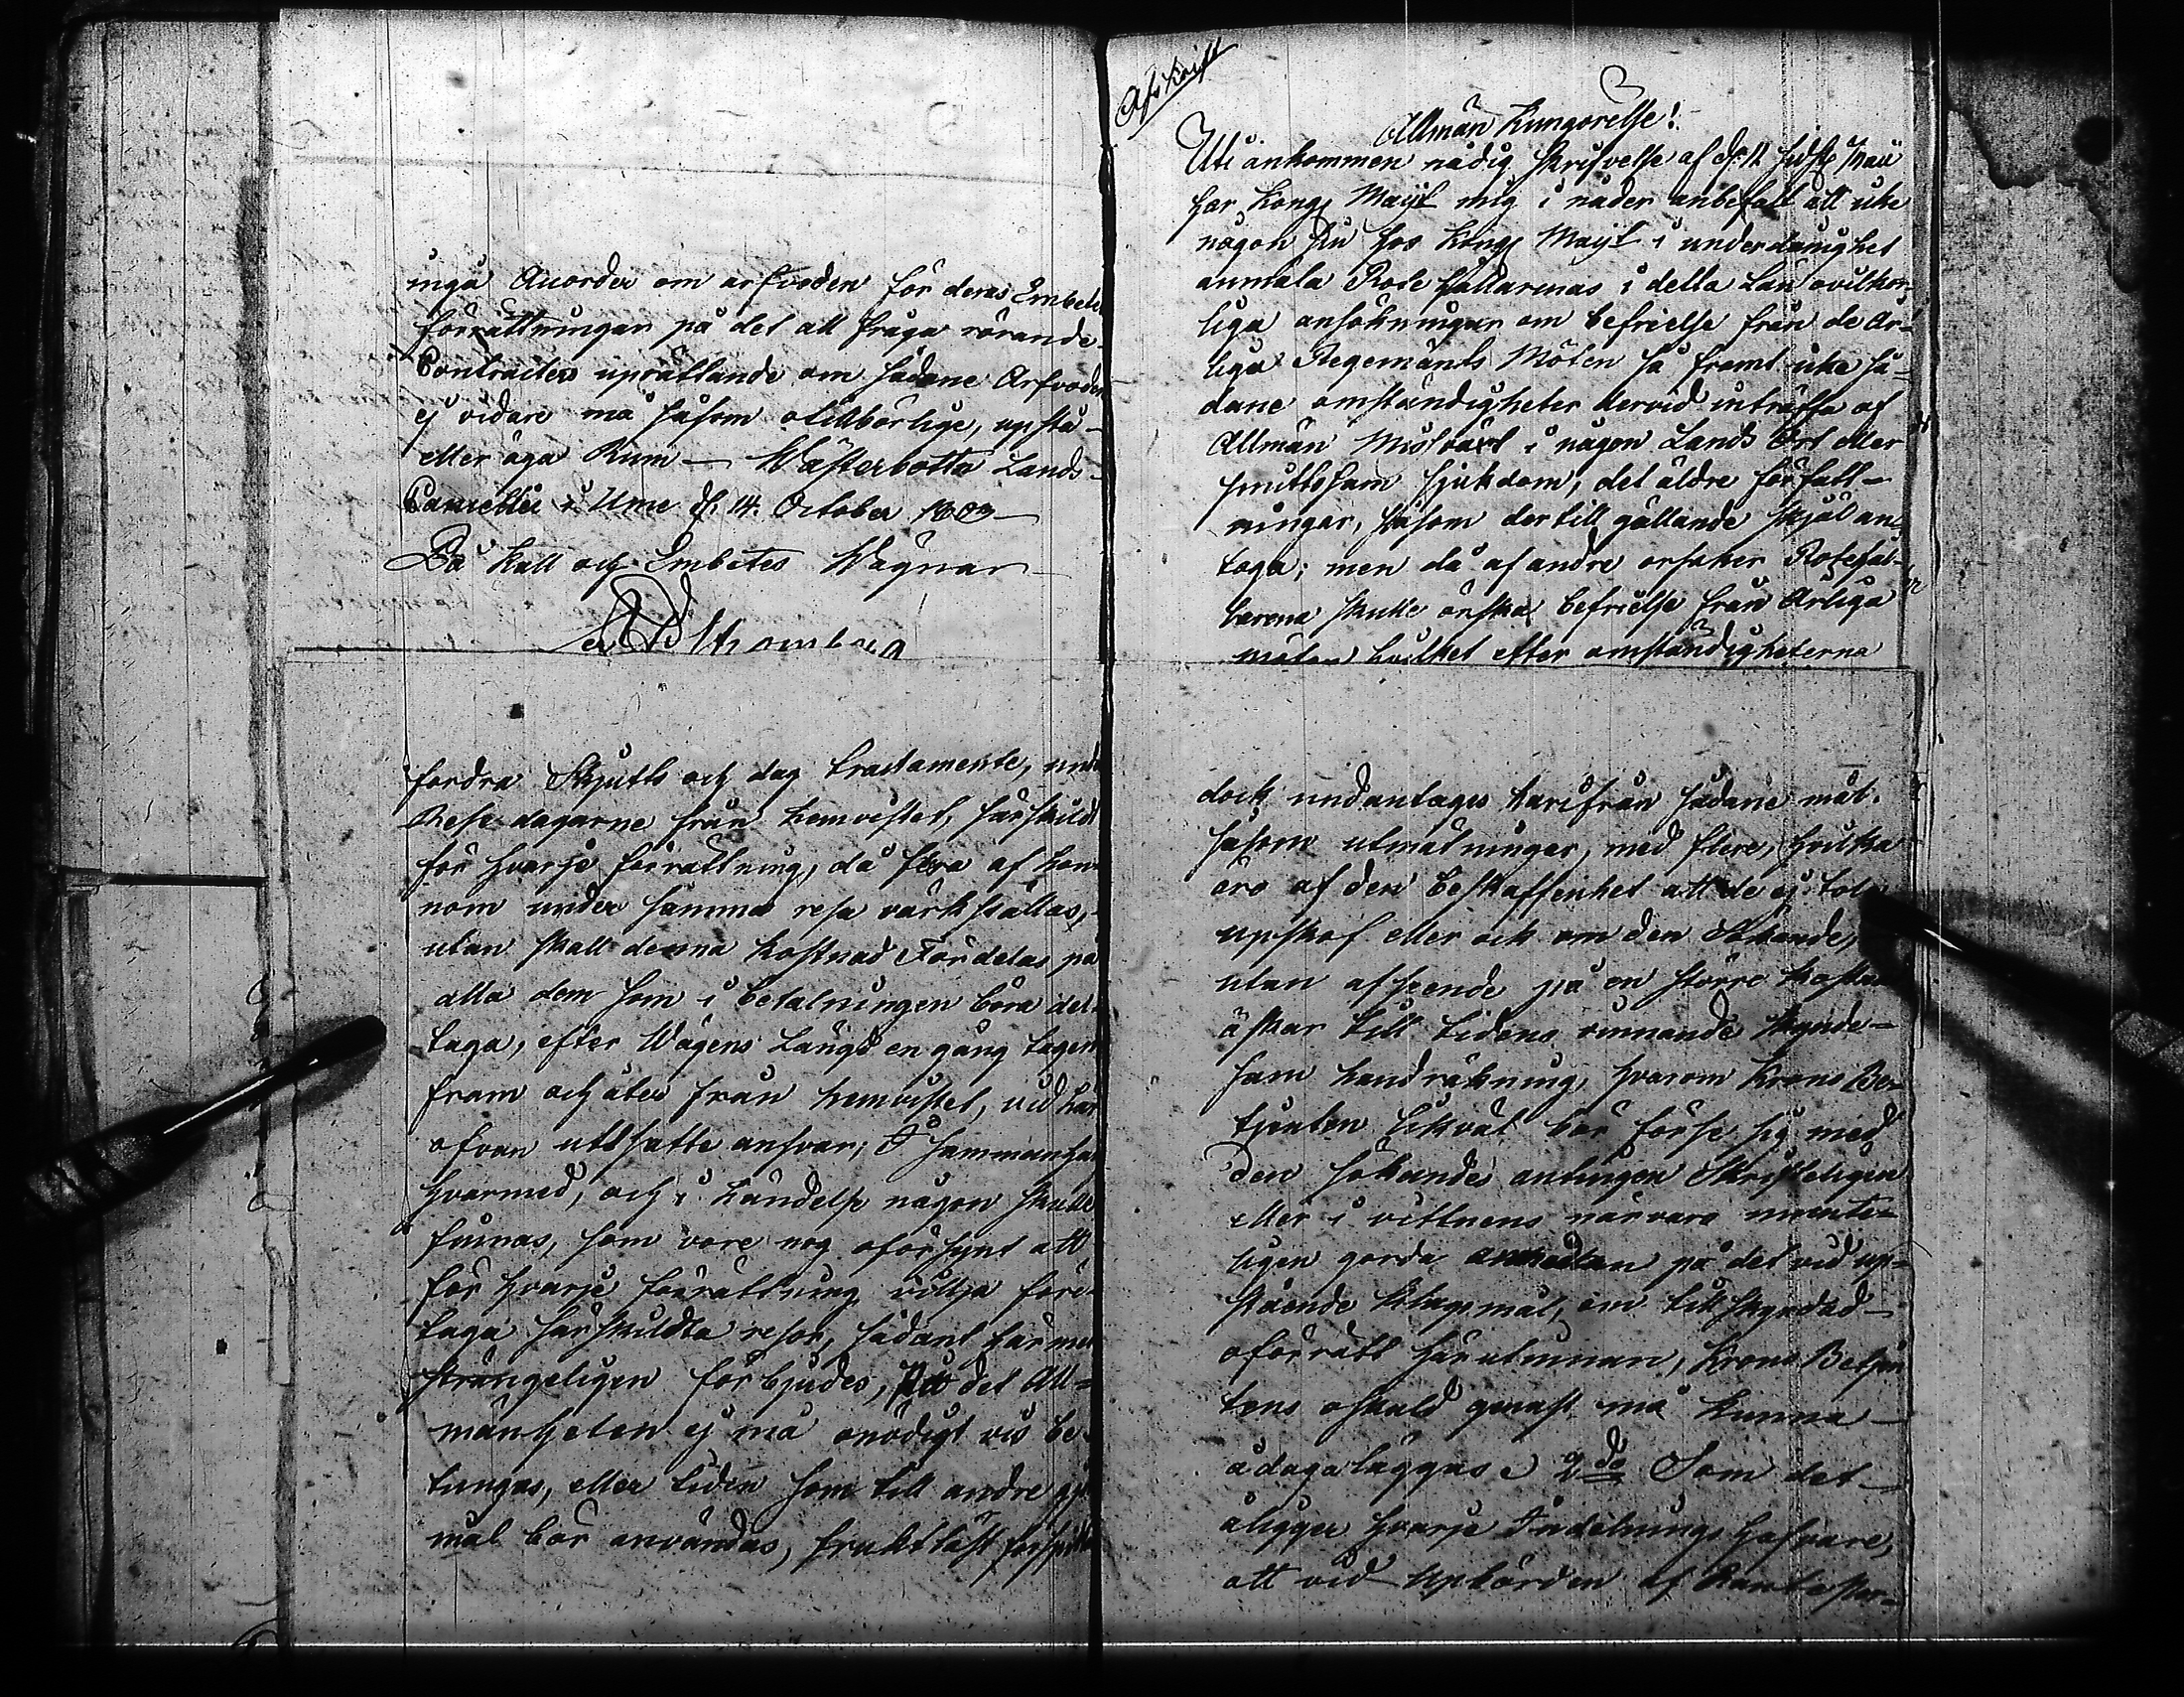 inga Accorder om arfvoden för deras Embets
förrättningar på det att fråga rörande
Contracters uprättande om sådane Arfvoden
ej vidare må såsom otillbörlige, upstå
eller äga Rum — Wästerbottn Lands-
Cancellie i Umeå d. 14 October 1803 —
På Kall och Embetes Wägnar
Stromberg
fordra Skjuts och dag tractamente, under
Rese dagarne från hemvistet, särskildt
för hvarje förrättning, då flera af hon
nom under samma resa värkställas,
utan skall denna kostnad Fördelas på
alla dem som i betalningen böra del-
taga, efter Wägens Längd en gång tagen
fram och åter från hemvistet, vid här
ofvan utsatte ansvar; I sammanha
hvarmed, och i händelse någon skulle
finnas, som vore nog oförsynt att
för hvarje förrättning villja före-
taga särskildta resor, sådant härmed
strängeligen förbjudes, På det All-
mänheten ej må onödigt vis be-
tungas, eller tiden som till andre
mål bör användas, fruktlöst förspillas
Afskrift
Allmän Kungörelse!
Uti ankommen nådig skrifvelse af d. 12 sidstl.
har Kongl Maijt mig i nåder anbefalt att icke
någon sin hos Kongl Maijt i underdånighet
anmäla Rote hållarenas i detta Län ovilkor-
liga ansökningar om befrielse från de år-
liga Regements Möten så framt icke så-
dane omständigheter dervid inträffa af
Allmän Missväxt i någon Lands Ort eller
smittosam sjukdom, det äldre författ-
ningar, såsom dertill gällande skjäl an-
taga; men då af andre orsaker Rotehål-
larena skulle önska befrielse från årliga
möten hvilket efter omständigheterna
dock undantages härifrån sådane mål.
såsom utmätningar, med flere, hvilka
äro af den beskaffenhet att de ej tola
upskof eller ock om den Sökande,
utan afseende på en större kostnad
äskar till tidens vinnande skynde-
sam handräkning, hvarom Krono Be-
tjenten likväl bör förse sig med
den Sökandes antingen Skrifteligen
eller i vittnens närvaro munte-
ligen gorda anmälan på det vid up-
stående klagomål, om tillskyndad
oförrätt härutinnan, Krono Betjen
tens oskuld genast må kunna
ådagaläggas. 2do Som det
åligger hvarje Indelnings hafvare,
att vid Upbörden af Ränte Per-